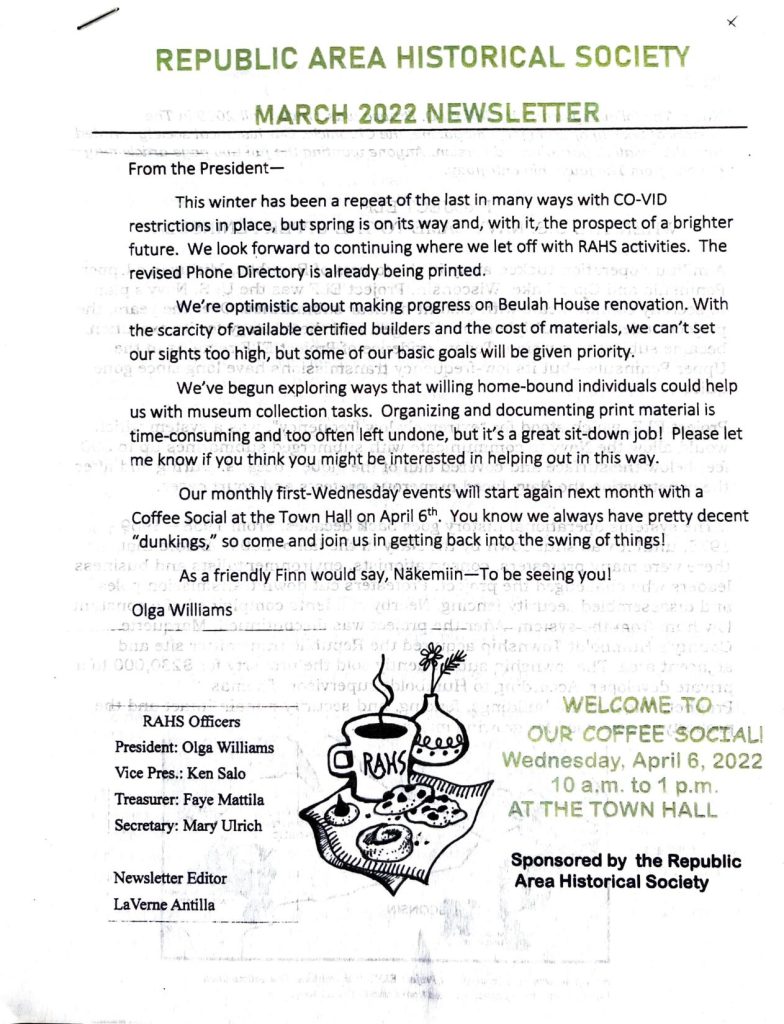 REPUBLIC AREA HISTORICAL SOCIETY
MARCH 2022 NEWSLETTER
From the President—
This winter has been a repeat of the last in many ways with CO-VID
restrictions in place, but spring is on its way and, with it, the prospect of a brighter
future. We look forward to continuing where we let off with RAHS activities. The
revised Phone Directory is already being printed.
We're optimistic about making progress on Beulah House renovation. With
the scarcity of available certified builders and the cost of materials, we can't set
our sights too high, but some of our basic goals will be given priority.
We've begun exploring ways that willing home-bound individuals could help
us with museum collection tasks. Organizing and documenting print material is
time-consuming and too often left undone, but it's a great sit-down job! Please let
me know if you think you might be interested in helping out in this way.
Our monthly first-Wednesday events will start again next month with a
Coffee Social at the Town Hall on April 6th. You know we always have pretty decent
"dunkings," so come and join us in getting back into the swing of things!
As a friendly Finn would say, Näkemiin—To be seeing you!
Olga Williams
RAHS Officers
President: Olga Williams
Vice Pres.: Ken Salo
Treasurer: Faye Mattila
Secretary: Mary Ulrich
Newsletter Editor
LaVerne Antilla
RAHS
WELCOME TO
OUR COFFEE SOCIAL!
Wednesday, April 6, 2022
10 a.m. to 1 p.m.
AT THE TOWN HALL
Sponsored by the Republic
Area Historical Society